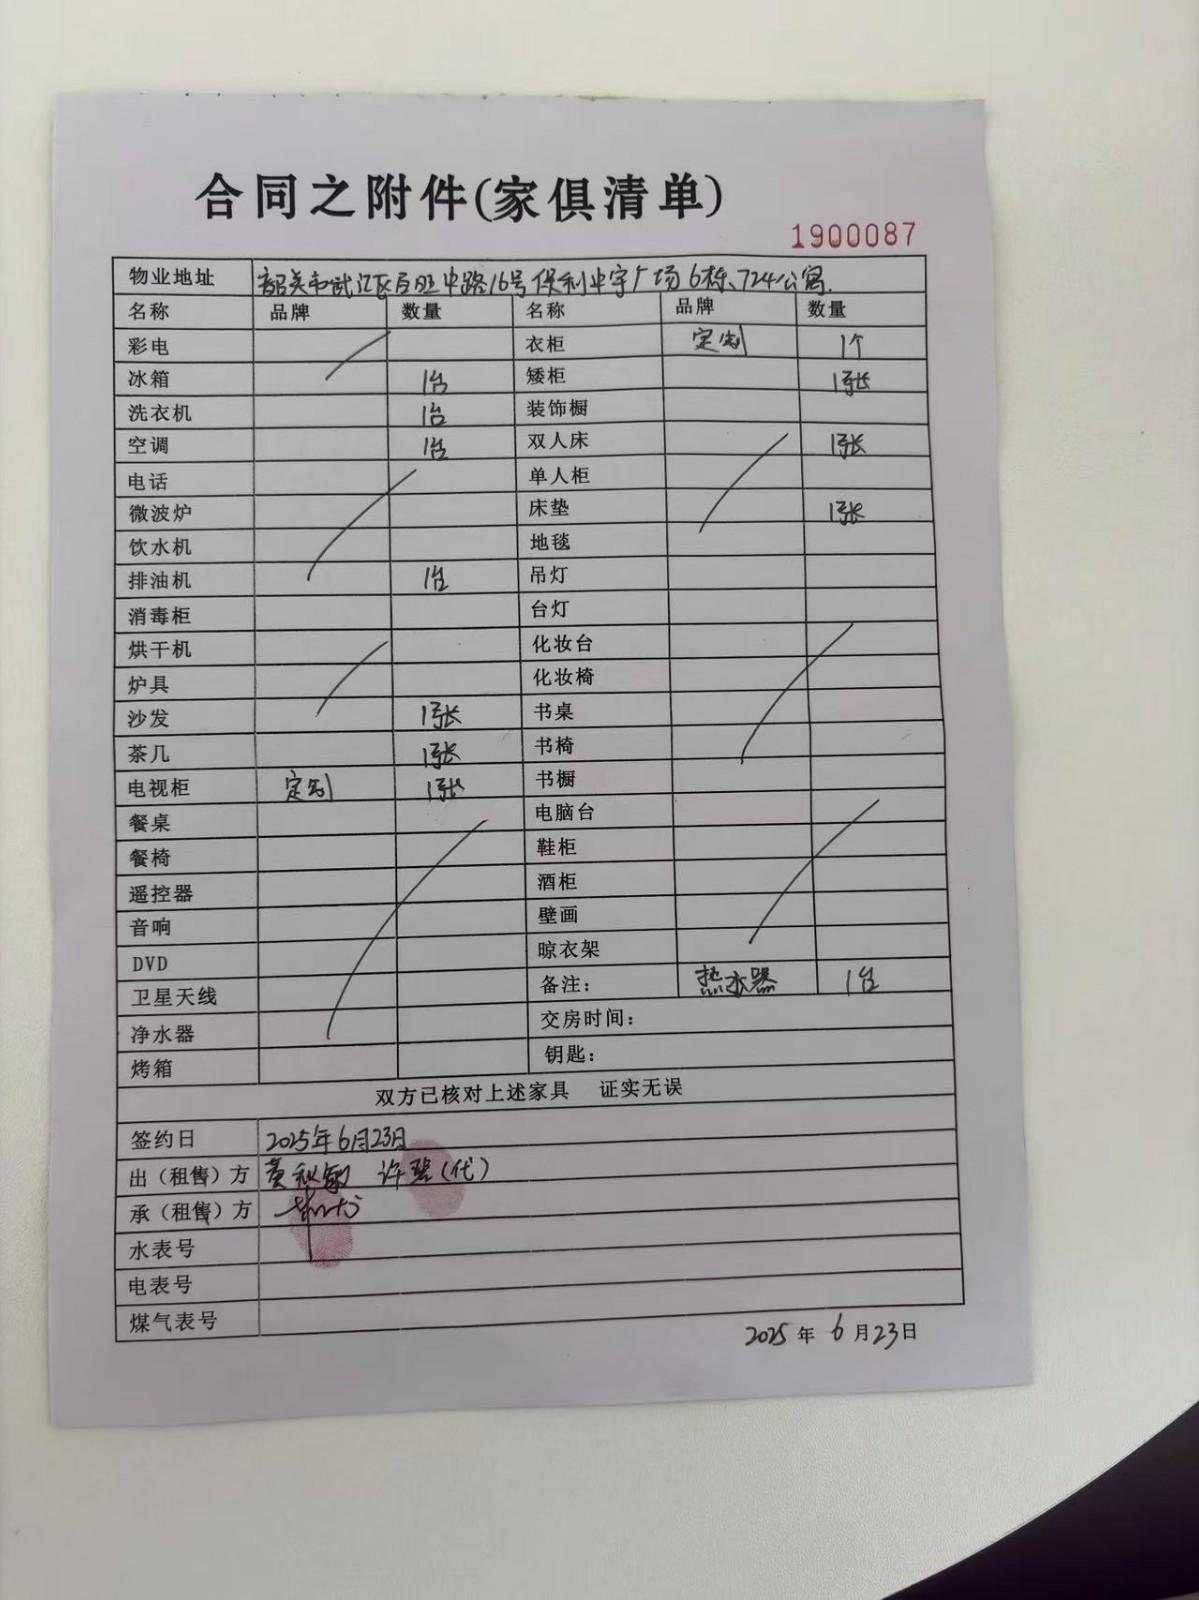 合同之附件(家俱清单)
1900087
物业地址 韶关市武江区百旺中路16号保利中宇广场6栋、724公寓.
名称 品牌 数量 名称 品牌 数量
彩电 衣柜 定制 1个
冰箱 1台 矮柜 1张
洗衣机 1台 装饰橱
空调 1台 双人床 1张
电话 单人柜
微波炉 床垫 1张
饮水机 地毯
排油机 1台 吊灯
消毒柜 台灯
烘干机 化妆台
炉具 化妆椅
沙发 1张 书桌
茶几 1张 书椅
电视柜 定制 1张 书橱
餐桌 电脑台
餐椅 鞋柜
遥控器 酒柜
音响 壁画
DVD 晾衣架
卫星天线 备注: 热水器 1台
净水器 交房时间:
烤箱 钥匙:
双方已核对上述家具 证实无误
签约日 2025年6月23日
出（租售）方 黄秋 许 (代)
承（租售）方
水表号
电表号
煤气表号
2025年6月23日